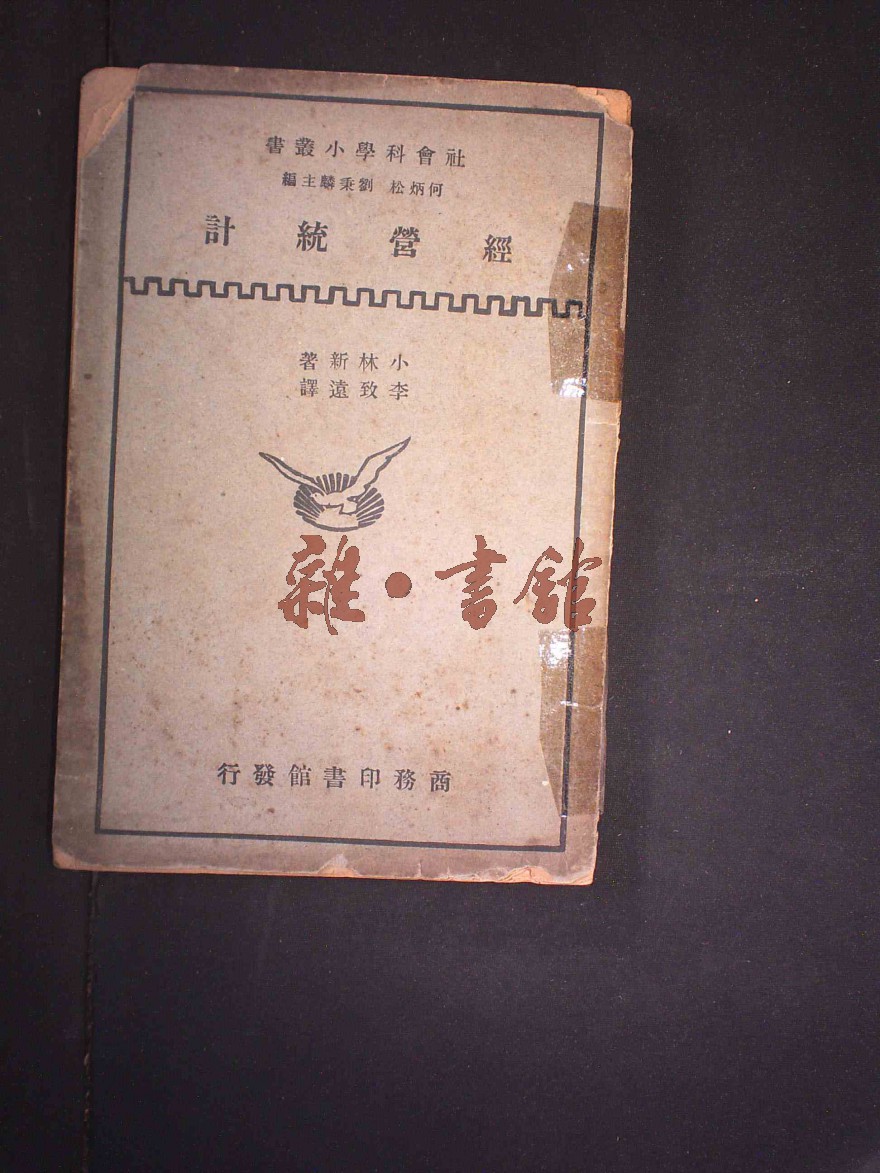 社會科學小叢書
何炳松 劉秉麟主編
經營統計
小林新著
李致遠譯
雜·書館
商務印書館發行